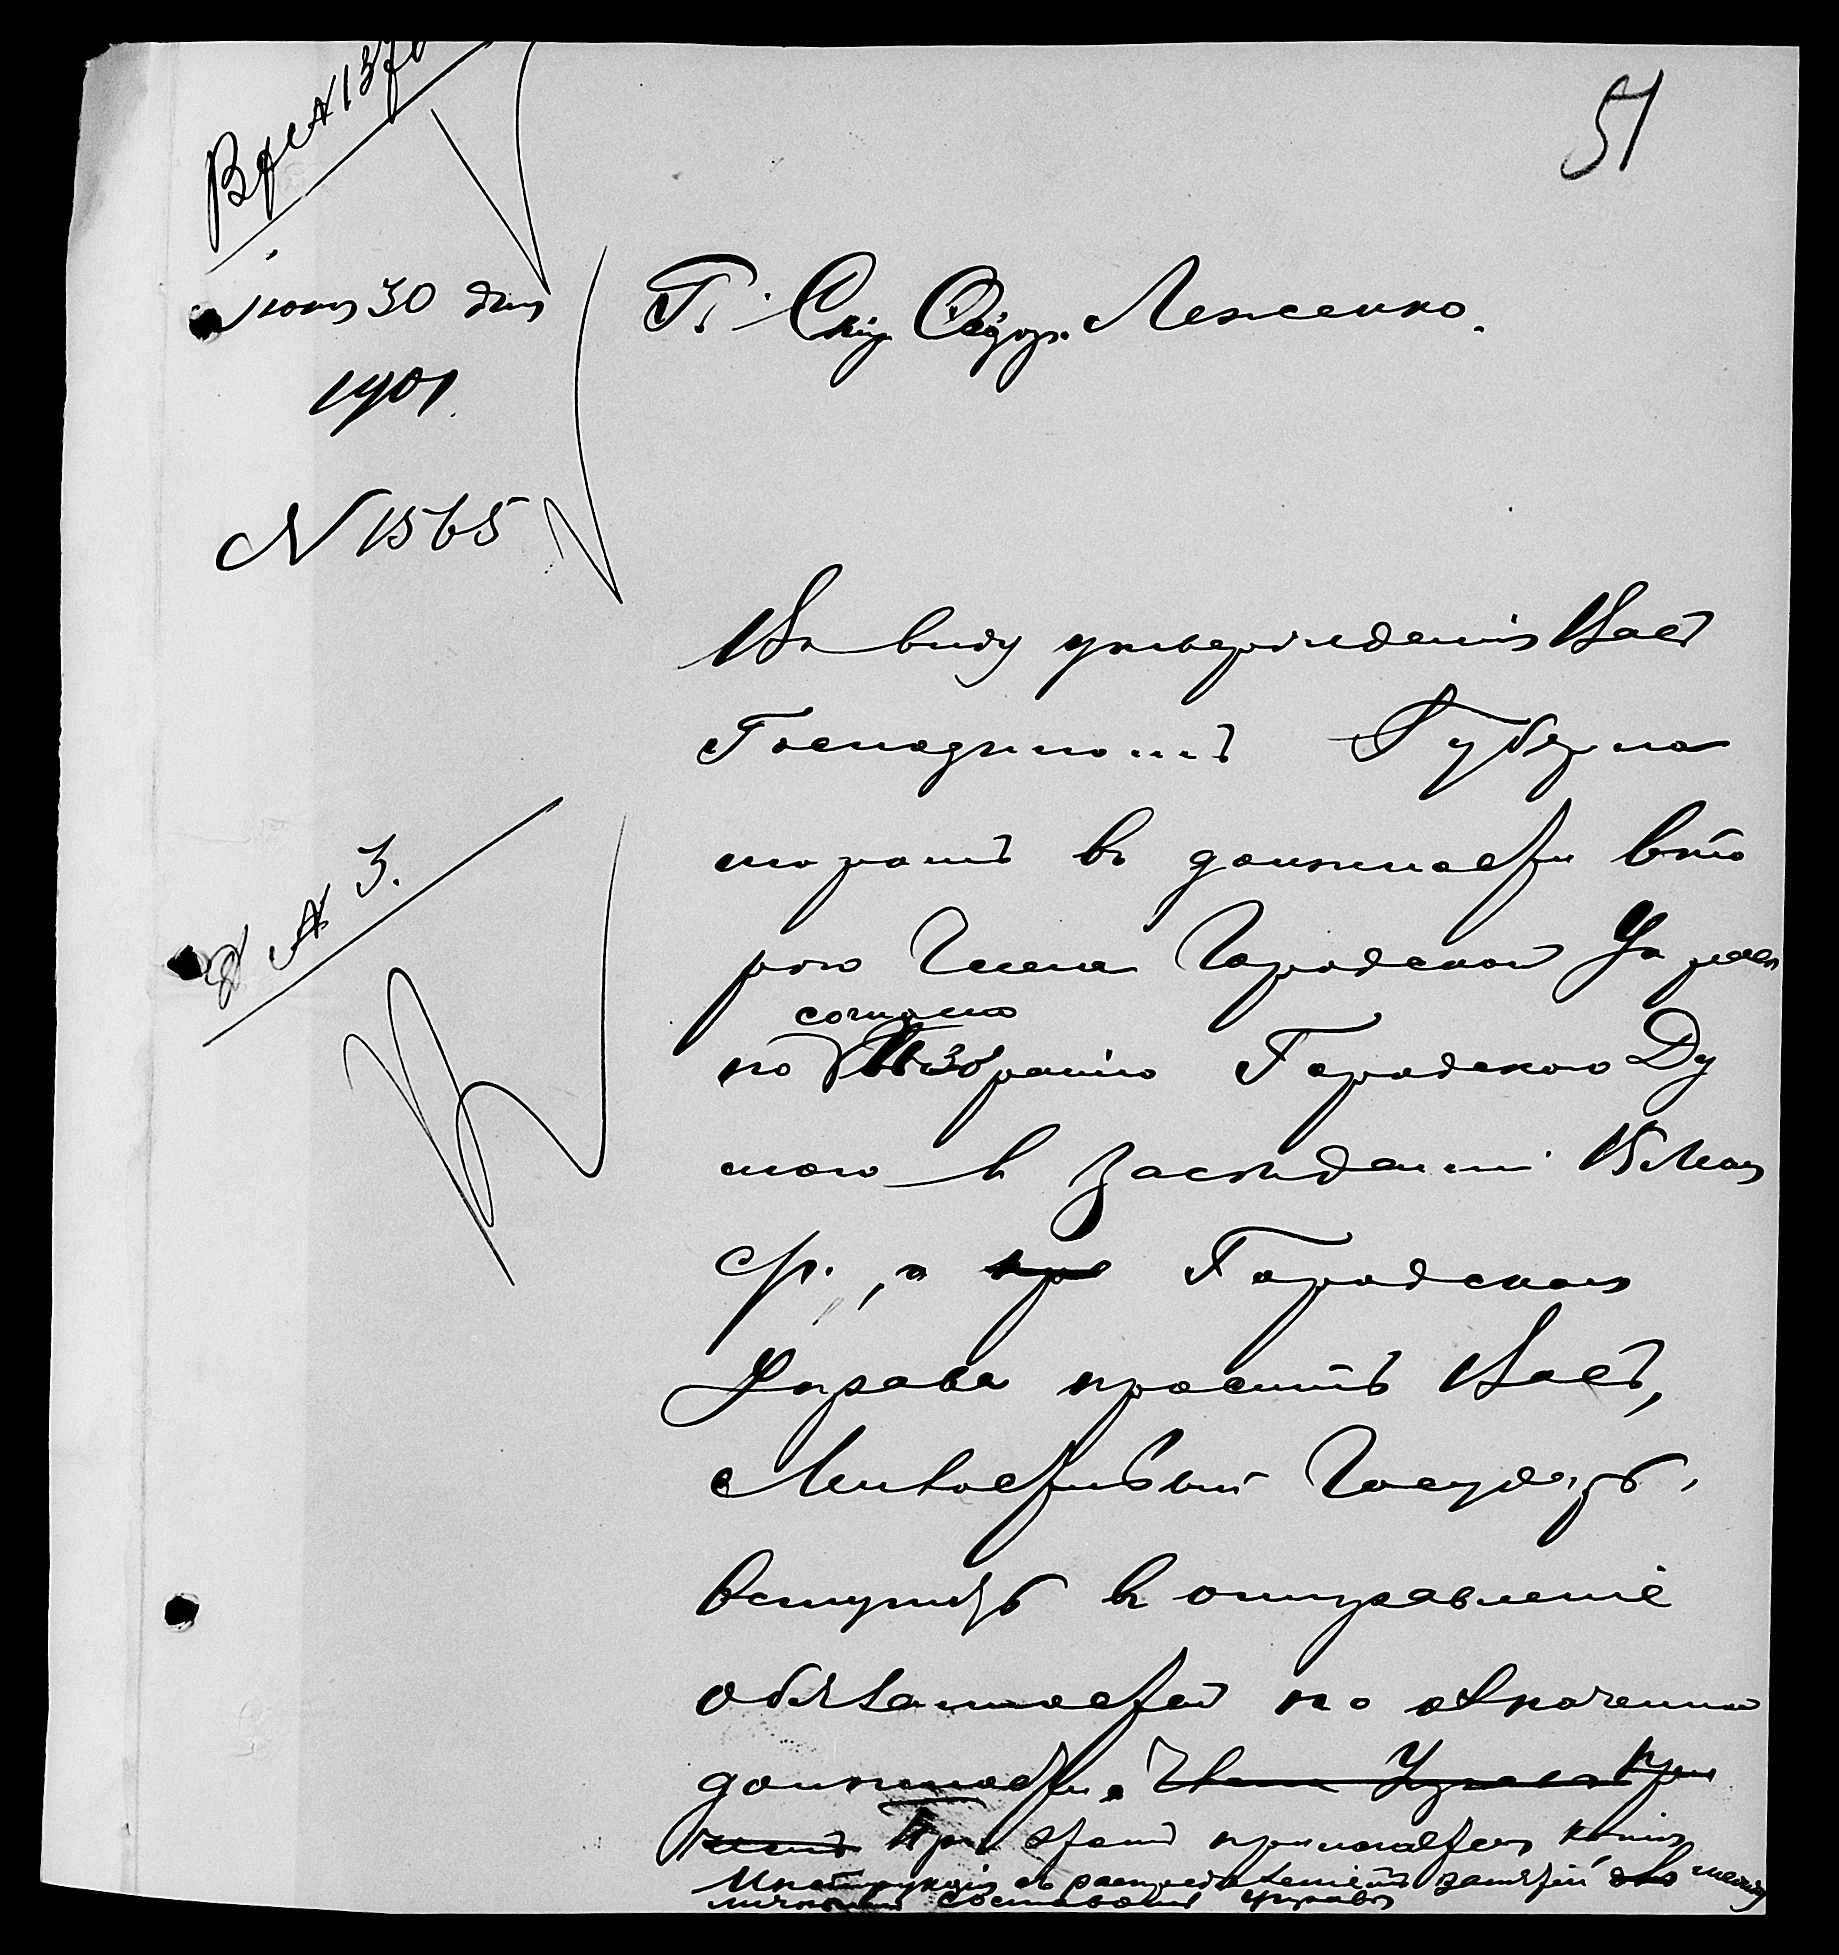 51
Вх № 137
Іюня 30 дня
1901.
N 1565
Г. Ѳедор. Леженко.
Въ виду утвержденія Васъ
Господиномъ Губерна
торомъ въ должности вто
рого Члена Городской Управы
согласно
по Избранію Городского Ду
мою въ Засѣданіи 15 Мая
с/г., Городская
Управа проситъ Васъ,
Милостивый Государь,
вступить въ отправленіе
обязанностей по означенной
должности. Члена Управы При
чемъ При этомъ прилагается копія
Инструкціи съ распредѣленіемъ занятій между
личнымъ составомъ управы
№ 3.